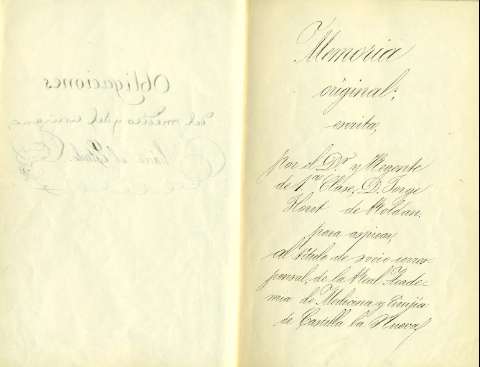 Obligaciones
del médico y del cirujano,
Para el Estado
Memoria
original,
escrita,
por el Dr. y Regente
de 1ª Clase, D. Jorge
Floret de Roldan.
para aspirar,
al título de socio corres
ponsal, de la Real Acade-
mia de Medicina y Cirujia
de Castilla la Nueva